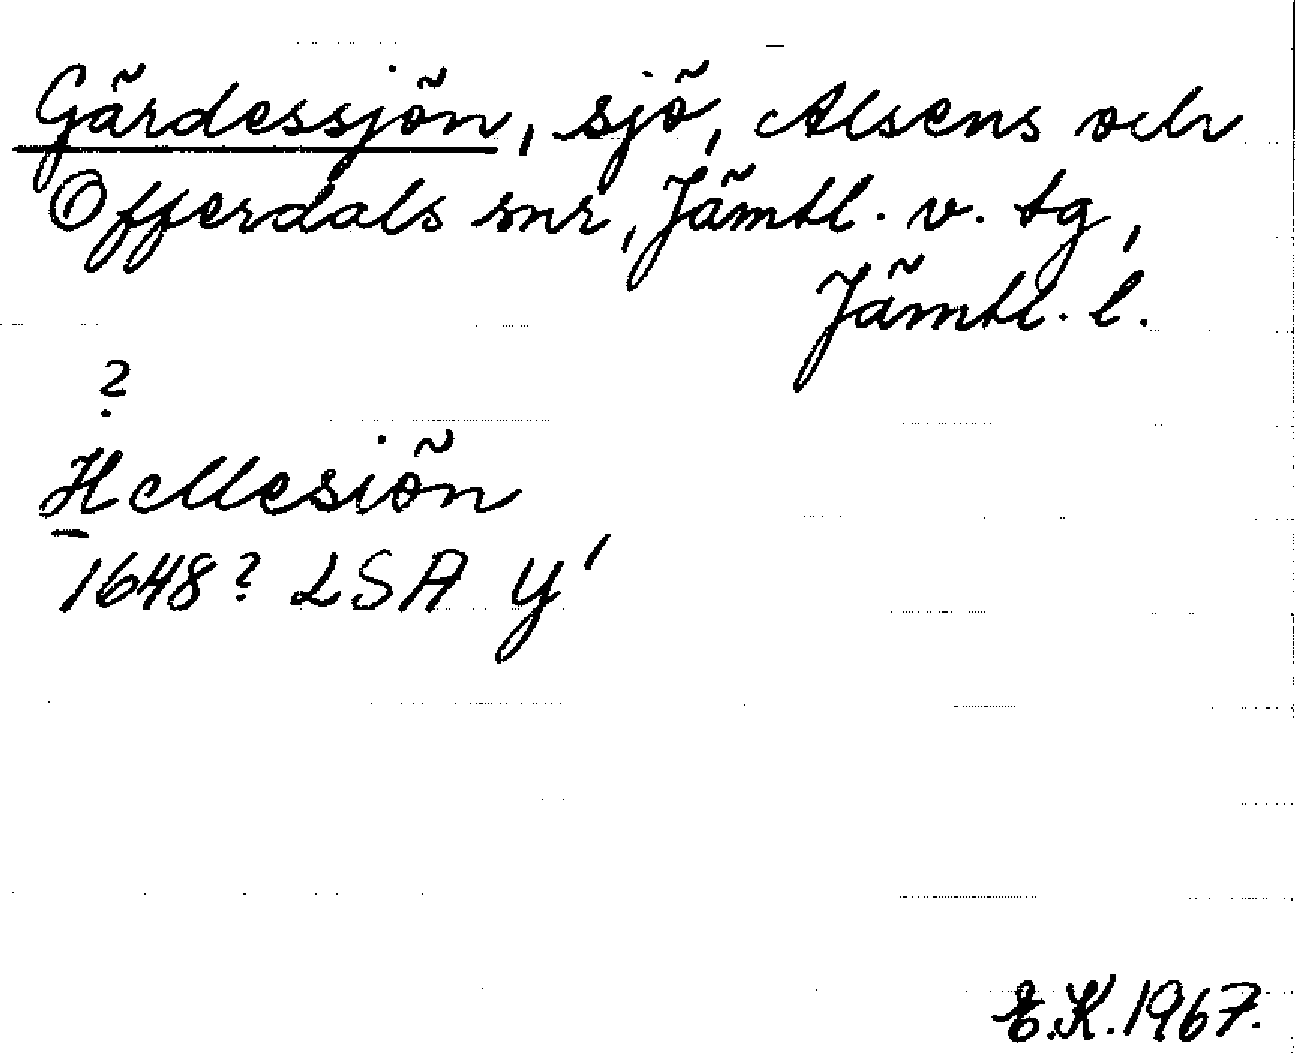 Gärdessjön, sjö, Alsens och
Offerdals snr, Jämtl. v. tg,
Jämtl. l.
?
Hellesiön
1648? LSA y'
E.K. 1967.